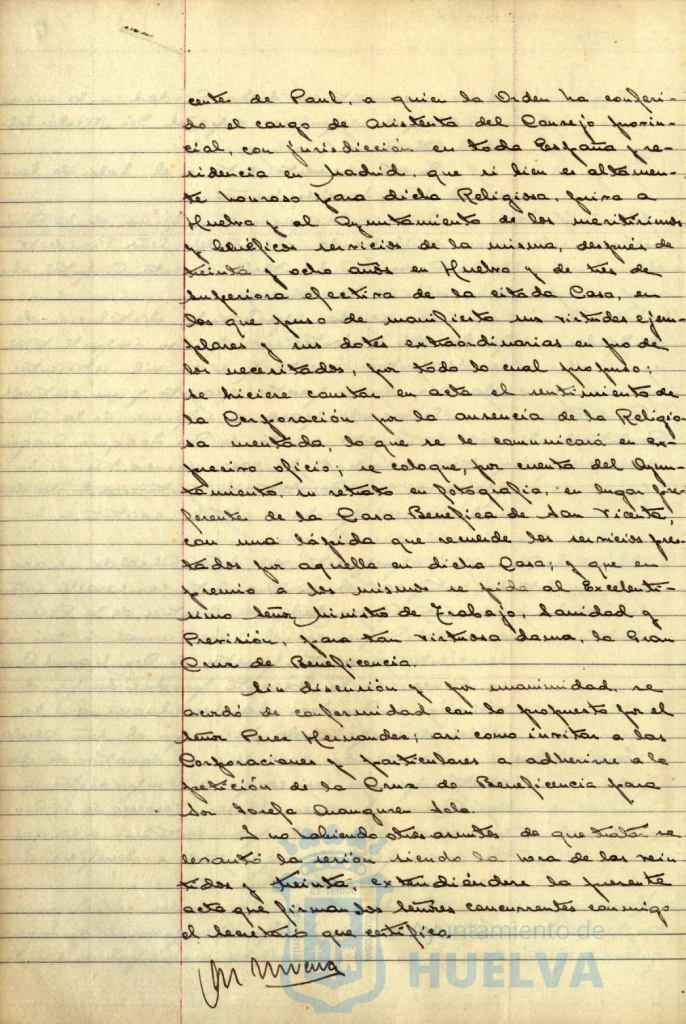 cente de Paul, a quien la Orden ha conferi-
do el cargo de Asistenta del Consejo provin-
cial, con jurisdicción en toda España y re-
sidencia en Madrid, que si bien es altamen-
te honroso para dicha Religiosa, priva a
Huelva y al Ayuntamiento de los meritísimos
y benéficos servicios de la misma, después de
treinta y ocho años en Huelva y de tres de
Superiora efectiva de la citada Casa, en
los que puso de manifiesto sus virtudes ejem-
plares y sus dotes extraordinarias en pro de
los necesitados, por todo lo cual propuso:
se hiciere constar en acta el sentimiento de
la Corporación por la ausencia de la Religio-
sa mentada, lo que se le comunicará en ex-
presivo oficio; se coloque, por cuenta del Ayun-
tamiento, su retrato en fotografía, en lugar pre-
ferente de la Casa Benéfica de San Vicente,
con una lápida que recuerde los servicios pres-
tados por aquella en dicha Casa; y que en
premio a los mismos se pida al Excelentí-
simo Señor Ministro de Trabajo, Sanidad y
Previsión, para tan virtuosa dama, la Gran
Cruz de Beneficencia.
Sin discusión y por unanimidad, se
acordó de conformidad con lo propuesto por el
Señor Perez Hernandez; asi como invitar a las
Corporaciones y particulares a adherirse a la
petición de la Cruz de Beneficencia para
Sor Josefa Aranguren Sola.
Y no habiendo otros asuntos de que tratar se
levantó la sesión siendo la hora de las vein-
tidos y treinta, extendiéndose la presente
acta que firman los Señores concurrentes conmigo
el Secretario que certifico.
Ayuntamiento de
HUELVA